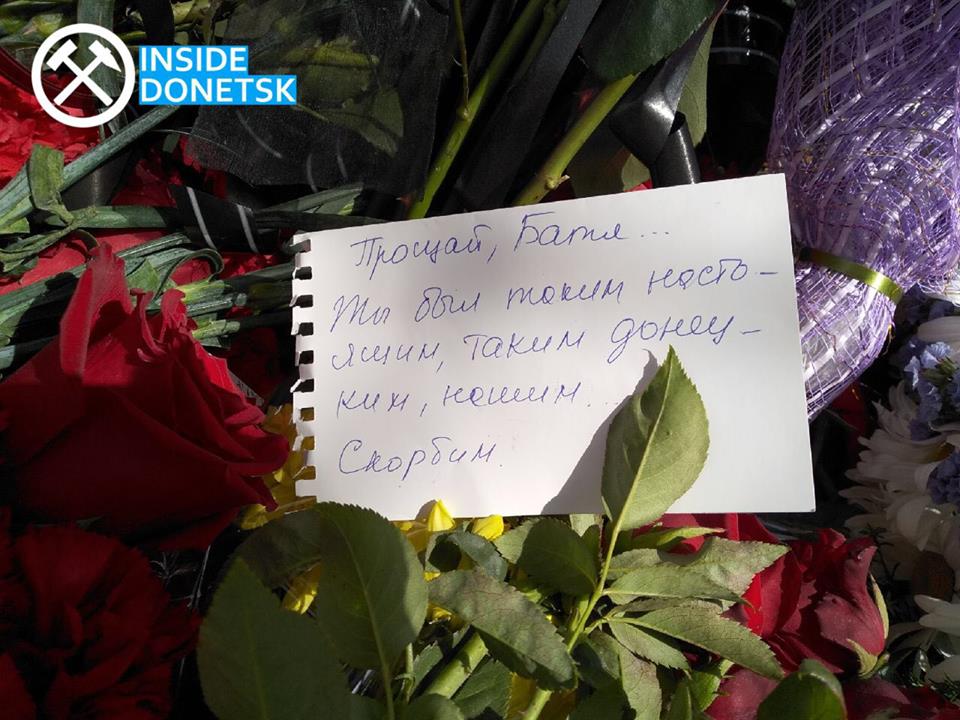 INSIDE
DONETSK
Прощай, Батя...
Ты был таким насто-
ящим, таким донец-
ким, нашим...
Скорбим.